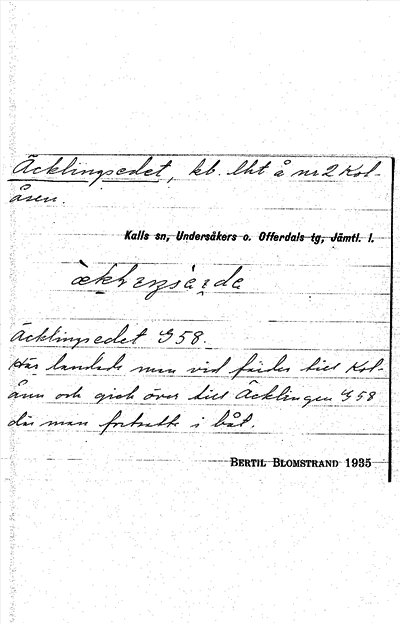 Äcklingsedet, kb. lht å nr 2 Kol-
åsen.
Kalls sn, Undersåkers o. Offerdals tg, Jämtl. l.
Äcklingsedet G58.
Här landade man vid färder till Kol-
åsen och gick över till Äcklingen G58
där man fortsatte i båt.
BERTIL BLOMSTRAND 1935